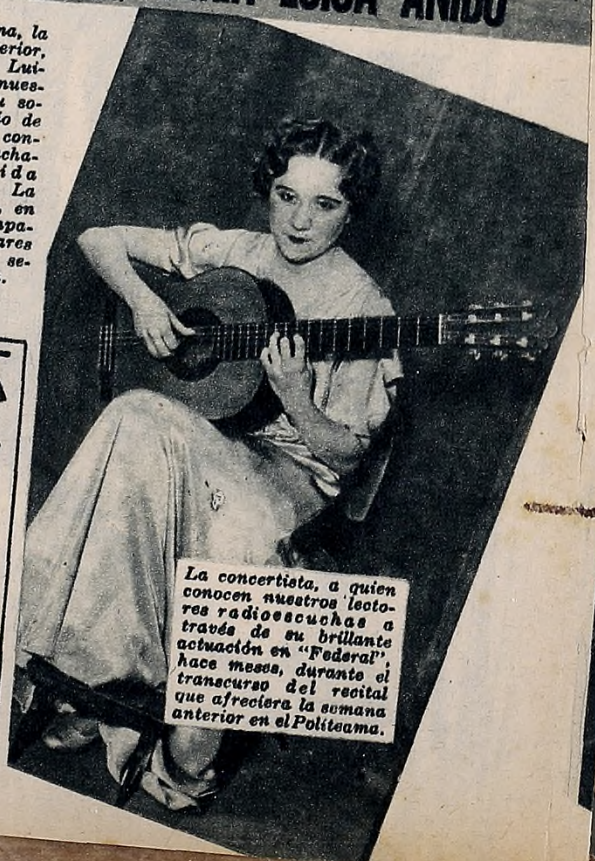 LUISA ANIDO
na, la
erior,
Lui-
nues-
u so-
io de
con-
cha-
ida
La
, en
mpa-
ares
se-
.
La concertista, a quien
conocen nuestros lecto-
res radioescuchas a
través de su brillante
actuación en "Federal",
hace meses, durante el
transcurso del recital
que afreciera la semana
anterior en el Politeama.